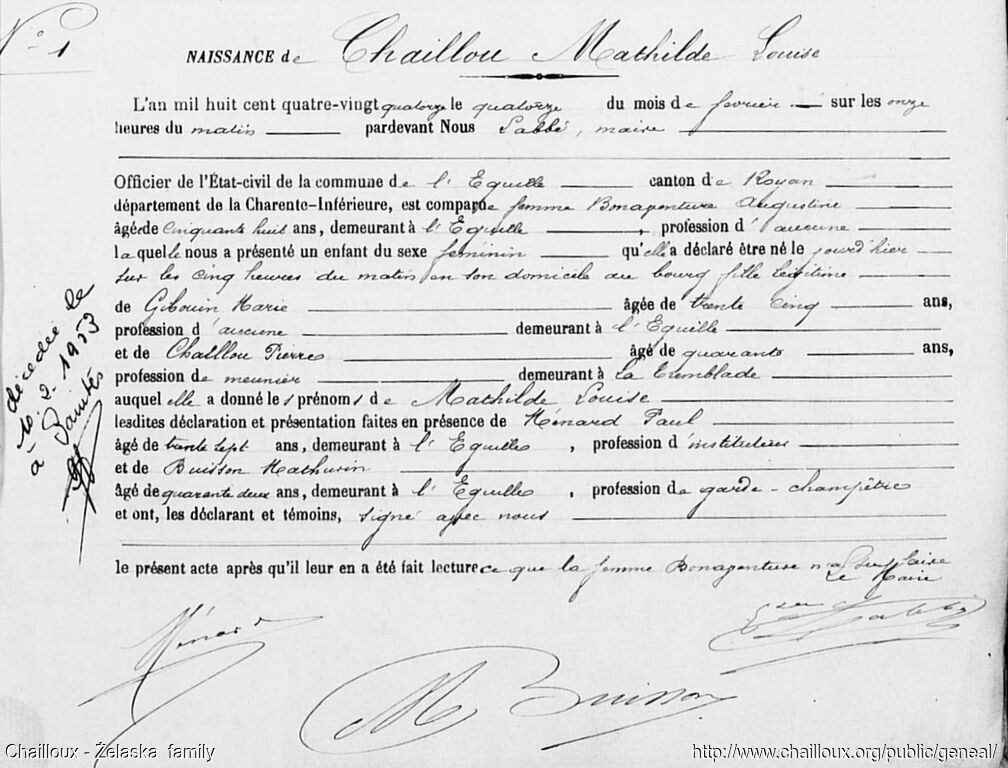 N° 1
NAISSANCE de Chaillou Mathilde Louise
L'an mil huit cent quatre-vingt quatorze le quatorze du mois de fevrier sur les onze
heures du matin pardevant Nous Labbé, maire
Officier de l'État-civil de la commune de l'Eguille canton de Royan
département de la Charente-Inférieure, est comparue femme Bonaventure Augustine
âgée de cinquante huit ans, demeurant à l'Eguille, profession d'aucune
laquelle nous a présenté un enfant du sexe féminin qu'elle a déclaré être né le jourd'hier
sur les cinq heures du matin en son domicile au bourg fille légitime
de Gibouin Marie âgée de trente cinq ans,
profession d'aucune demeurant à l'Eguille
et de Chaillou Pierre âgé de quarante ans,
profession de meunier demeurant à La Tremblade
auquel elle a donné les prénoms de Mathilde Louise
lesdites déclaration et présentation faites en présence de Ménard Paul
âgé de trente sept ans, demeurant à l'Eguille, profession d'instituteur
et de Buisson Mathurin
âgé de quarante deux ans, demeurant à l'Eguille, profession de garde-champêtre
et ont, les déclarant et témoins, signé avec nous
le présent acte après qu'il leur en a été fait lecture ce que la femme Bonaventure n'a su faire
Le Maire
Ménard
M Buisson
décédée le
10.2.1953
à Saintes
Chailloux - Żelaska family
http://www.chailloux.org/public/geneal/